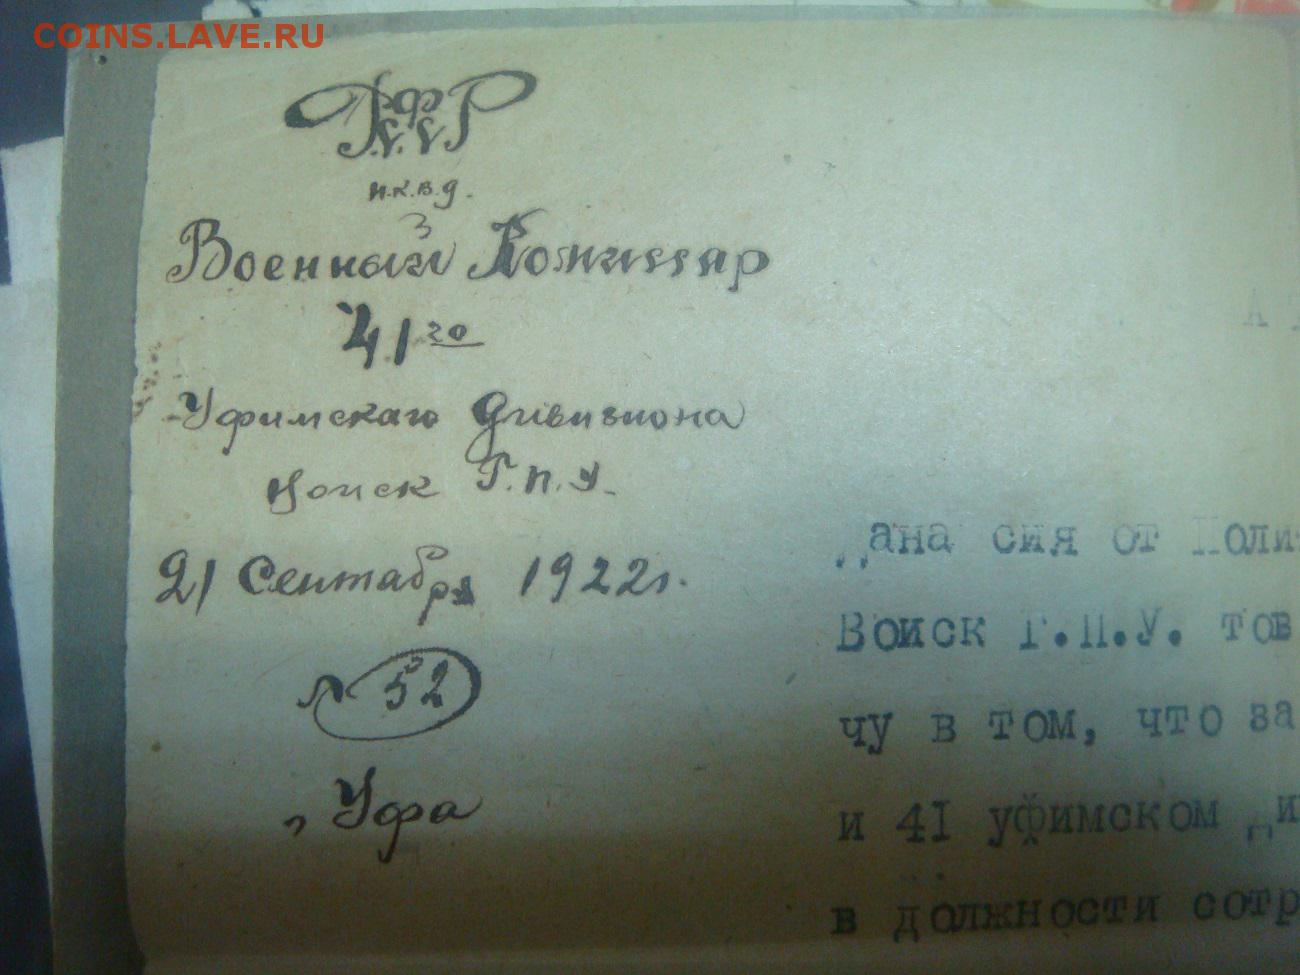 COINS.LAVE.RU
Р.С.Ф.С.Р
Н.К.В.Д.
Военный Комиссар
41го
Уфимскаго Дивизиона
Войск Г.П.У.
21 Сентября 1922г.
N 52
г Уфа
Дана сия от Поли
Войск Г.П.У. тов
чу в том, что за
и 41 уфимском ди
в должности сотр